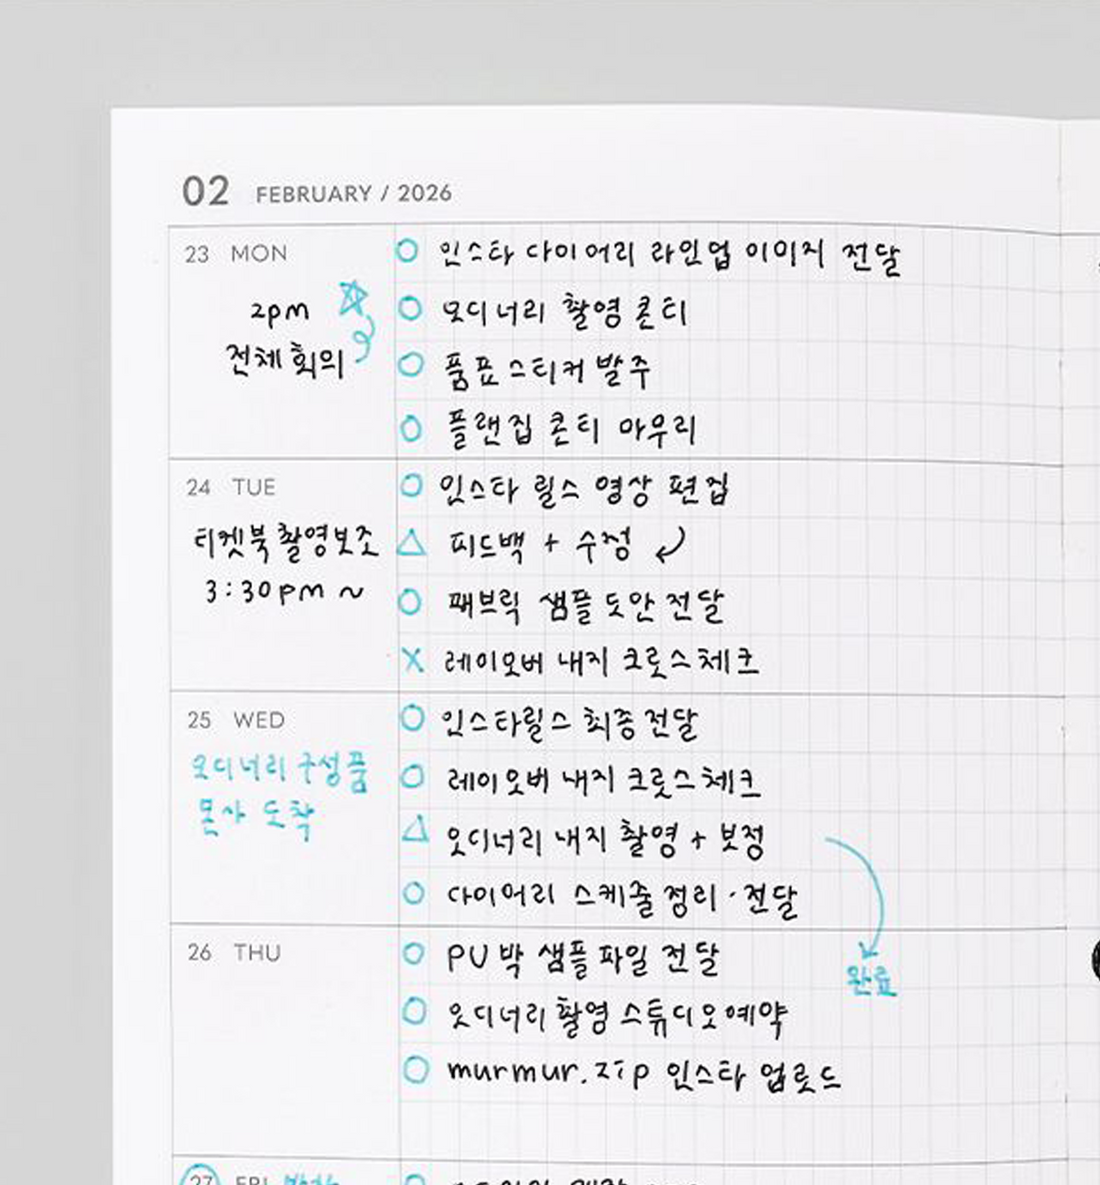 02 FEBRUARY / 2026
23 MON
2pm
전체 회의
인스타 다이어리 라인업 이미지 전달
오디너리 촬영 콘티
품표 스티커 발주
플랜집 콘티 마무리
24 TUE
티켓북 촬영보조
3:30pm ~
인스타 릴스 영상 편집
피드백 + 수정
패브릭 샘플 도안 전달
X 레이오버 내지 크로스체크
25 WED
오디너리 구성품
몬사 도착
인스타릴스 최종 전달
레이오버 내지 크로스체크
오디너리 내지 촬영 + 보정
다이어리 스케줄 정리·전달
완료
26 THU
PU 박 샘플 파일 전달
오디너리 촬영 스튜디오 예약
murmur.zip 인스타 업로드
27 FRI